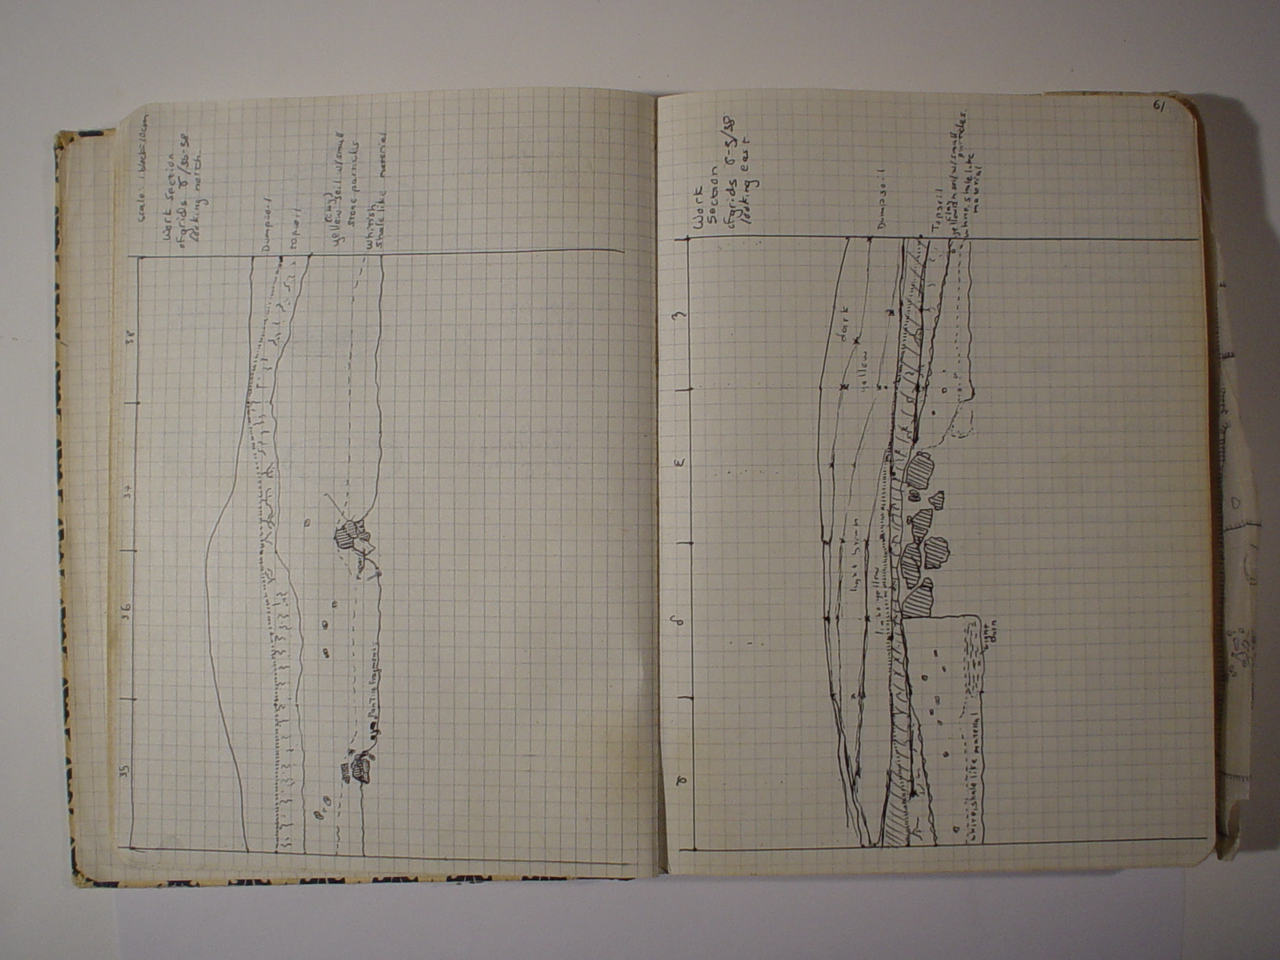 scale: 1 block = 10cm
Work Section
of grids
looking north
Dumpsoil
Topsoil
(clay)
yellow soil w/small
stone particles
whitish
shalelike material
38
37
36
35
Pantile fragments
61
Work
Section
of grids
looking east
Dumpsoil
Topsoil
(clay)
w/small
particles
white, shalelike
material
3
ε
δ
γ
dark
yellow
light brown
light yellow
white, shalelike material